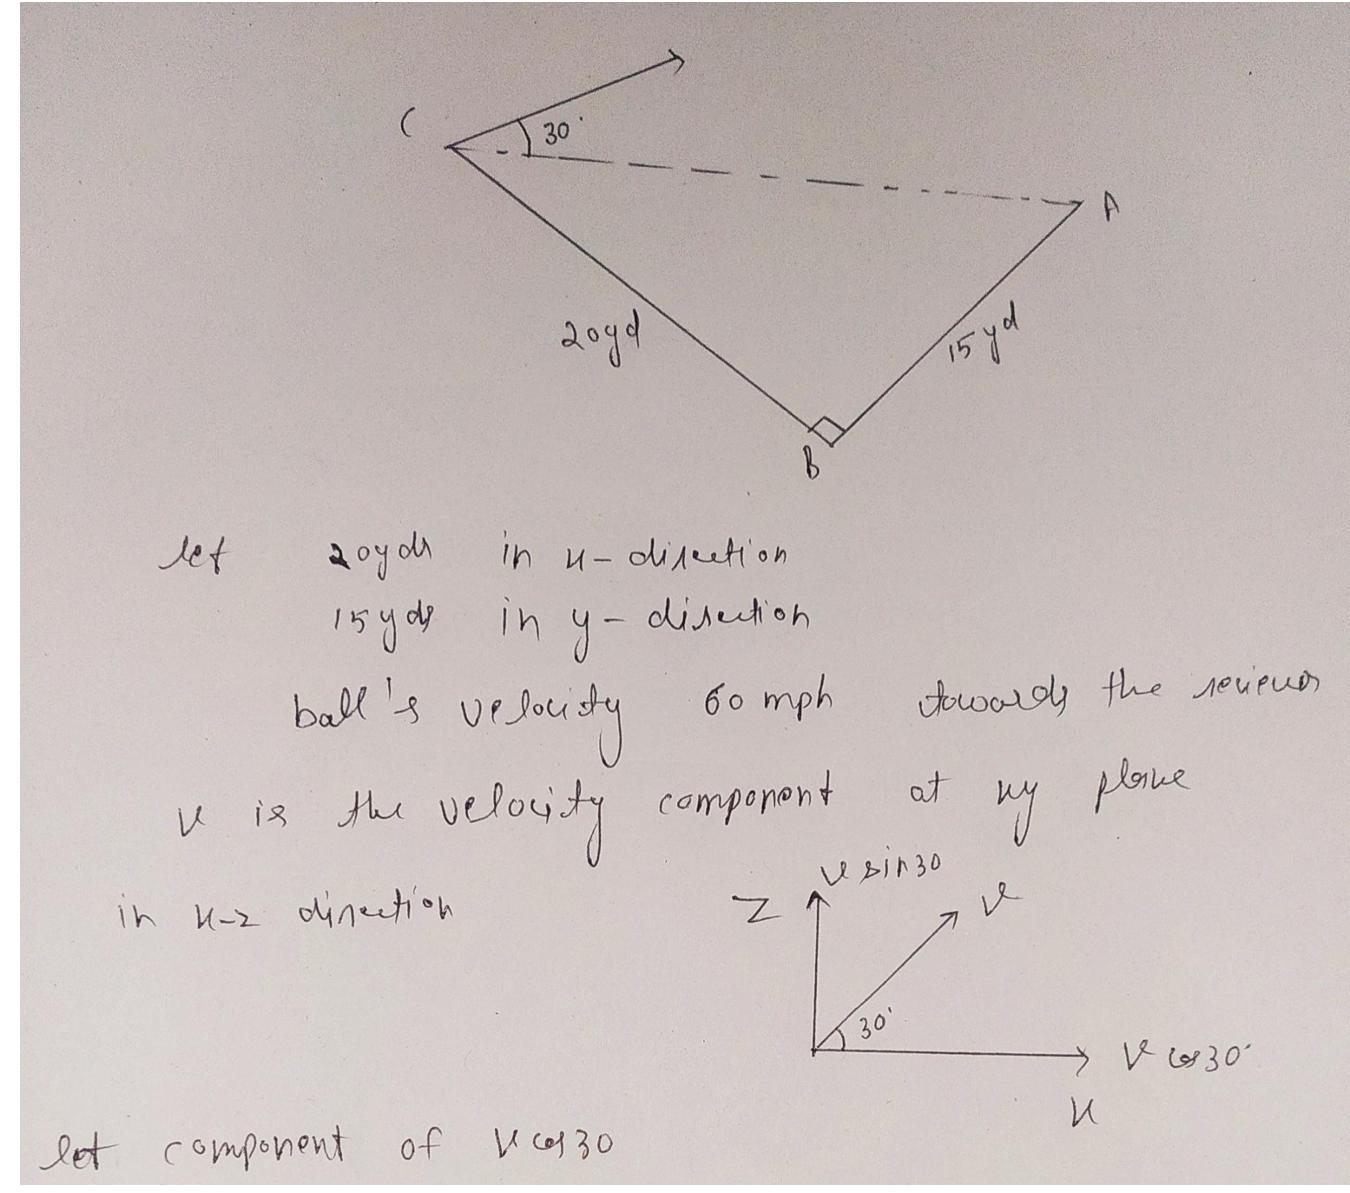 C
30°
A
20yd
15yd
B
let 20yds in x-direction
15yds in y-direction
ball's velocity 60 mph towards the reciever
v is the velocity component at xy plane
in x-z direction
Z
v sin30
v
30°
v cos30°
x
let component of v cos30